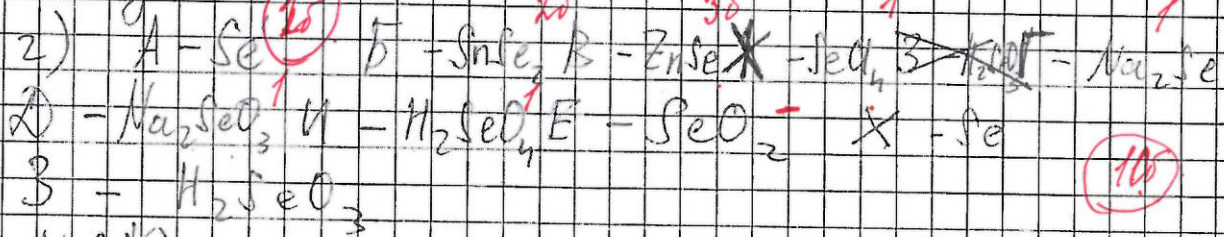 2) А - Se 2б Б - SnSe₂ В - ZnSe Ж - SeCl₄ Г - Na₂Se
Д - Na₂SeO₃ И - H₂SeO₄ Е - SeO₂ Х - Se
З - H₂SeO₃